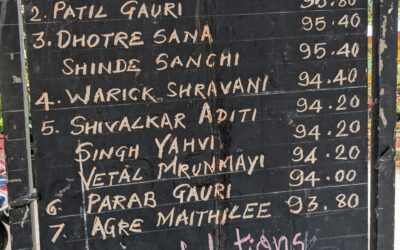 2. PATIL GAURI
3. DHOTRE SANA 95.40
SHINDE SANCHI 95.40
4. WARICK SHRAVANI 94.40
5. SHIVALKAR ADITI 94.20
SINGH YAHVI 94.20
VETAL MRUNMAYI 94.20
6 PARAB GAURI 94.00
7 AGRE MAITHILEE 93.80